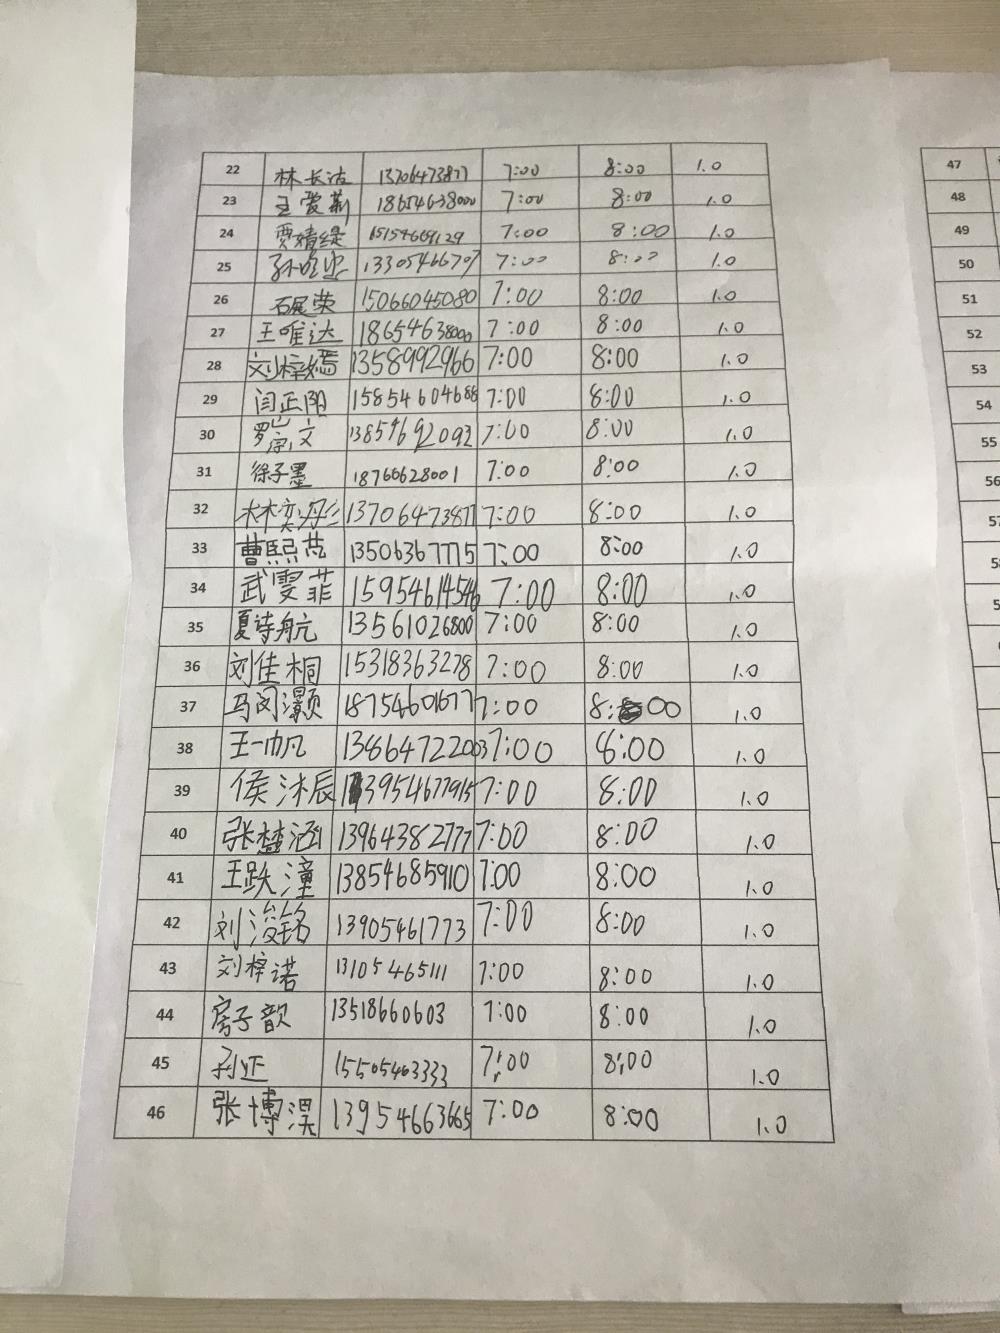 22 林长法 13706473877 7:00 8:00 1.0
23 王爱莉 18654638000 7:00 8:00 1.0
24 贾婧缇 15154669129 7:00 8:00 1.0
25 13305466707 7:00 8:00 1.0
26 石尾荣 15066045080 7:00 8:00 1.0
27 王唯达 18654638000 7:00 8:00 1.0
28 刘梓嫣 1358992966 7:00 8:00 1.0
29 闫正阳 15854604688 7:00 8:00 1.0
30 罗崇文 13854692092 7:00 8:00 1.0
31 徐子墨 18766628001 7:00 8:00 1.0
32 林奕彤 13706473877 7:00 8:00 1.0
33 曹熙芃 13506367775 7:00 8:00 1.0
34 武雯菲 15954614546 7:00 8:00 1.0
35 夏诗航 13561026800 7:00 8:00 1.0
36 刘佳桐 15318363278 7:00 8:00 1.0
37 马闵灏 18754601677 7:00 8:00 1.0
38 王一帆 13864722003 7:00 8:00 1.0
39 侯沐辰 13954677915 7:00 8:00 1.0
40 张楚涵 13964382777 7:00 8:00 1.0
41 王跃潼 13854685910 7:00 8:00 1.0
42 刘浚铭 13905461773 7:00 8:00 1.0
43 刘梓诺 13105465111 7:00 8:00 1.0
44 房子歆 13518660603 7:00 8:00 1.0
45 孙正 15505463333 7:00 8:00 1.0
46 张博淏 13954663665 7:00 8:00 1.0
47
48
49
50
51
52
53
54
55
56